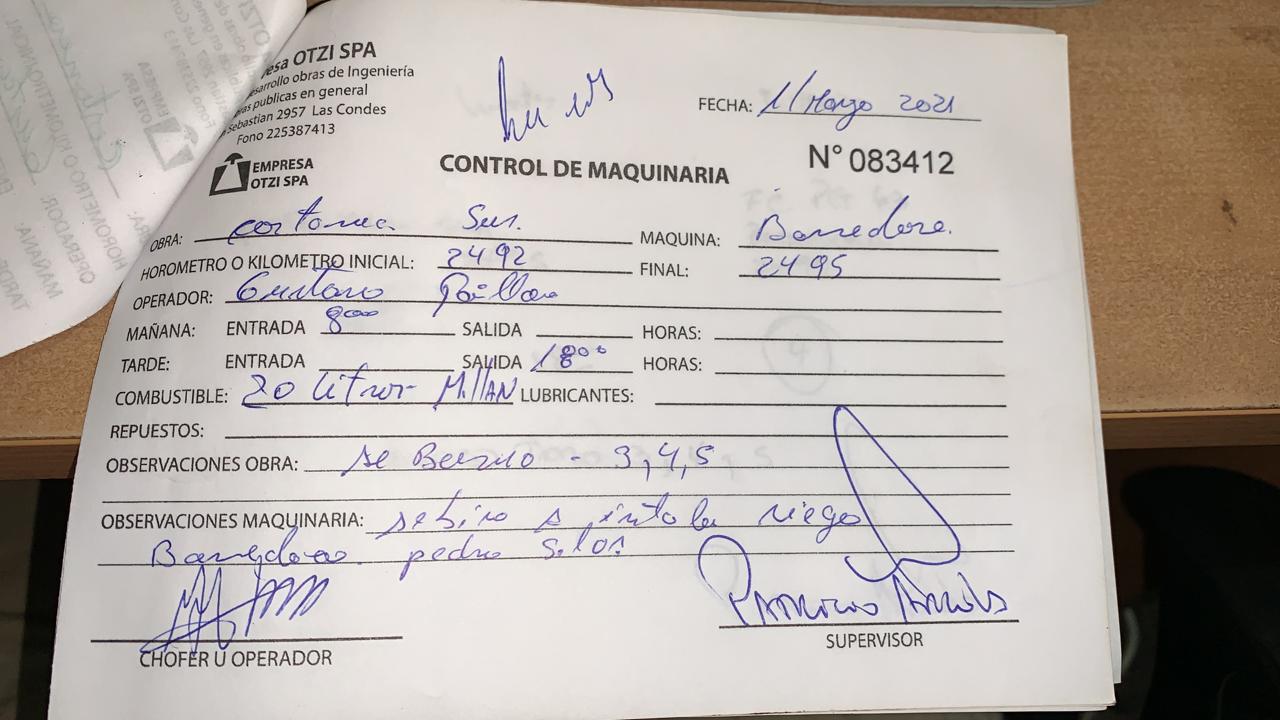 esa OTZI SPA
esarrollo obras de Ingeniería
ras publicas en general
Sebastian 2957 Las Condes
Fono 225387413
EMPRESA
OTZI SPA
Lunes
FECHA: 1/Marzo 2021
CONTROL DE MAQUINARIA
N° 083412
OBRA: costanera Sur. MAQUINA: Barredora.
HOROMETRO O KILOMETRO INICIAL: 2492 FINAL: 2495
OPERADOR: Gustavo
MAÑANA: ENTRADA 800 SALIDA HORAS:
TARDE: ENTRADA SALIDA 1800 HORAS:
COMBUSTIBLE: 20 litros Millan LUBRICANTES:
REPUESTOS:
OBSERVACIONES OBRA: se - 3,4,5
OBSERVACIONES MAQUINARIA: riego
Barredora pedro
CHOFER U OPERADOR
Patricio
SUPERVISOR